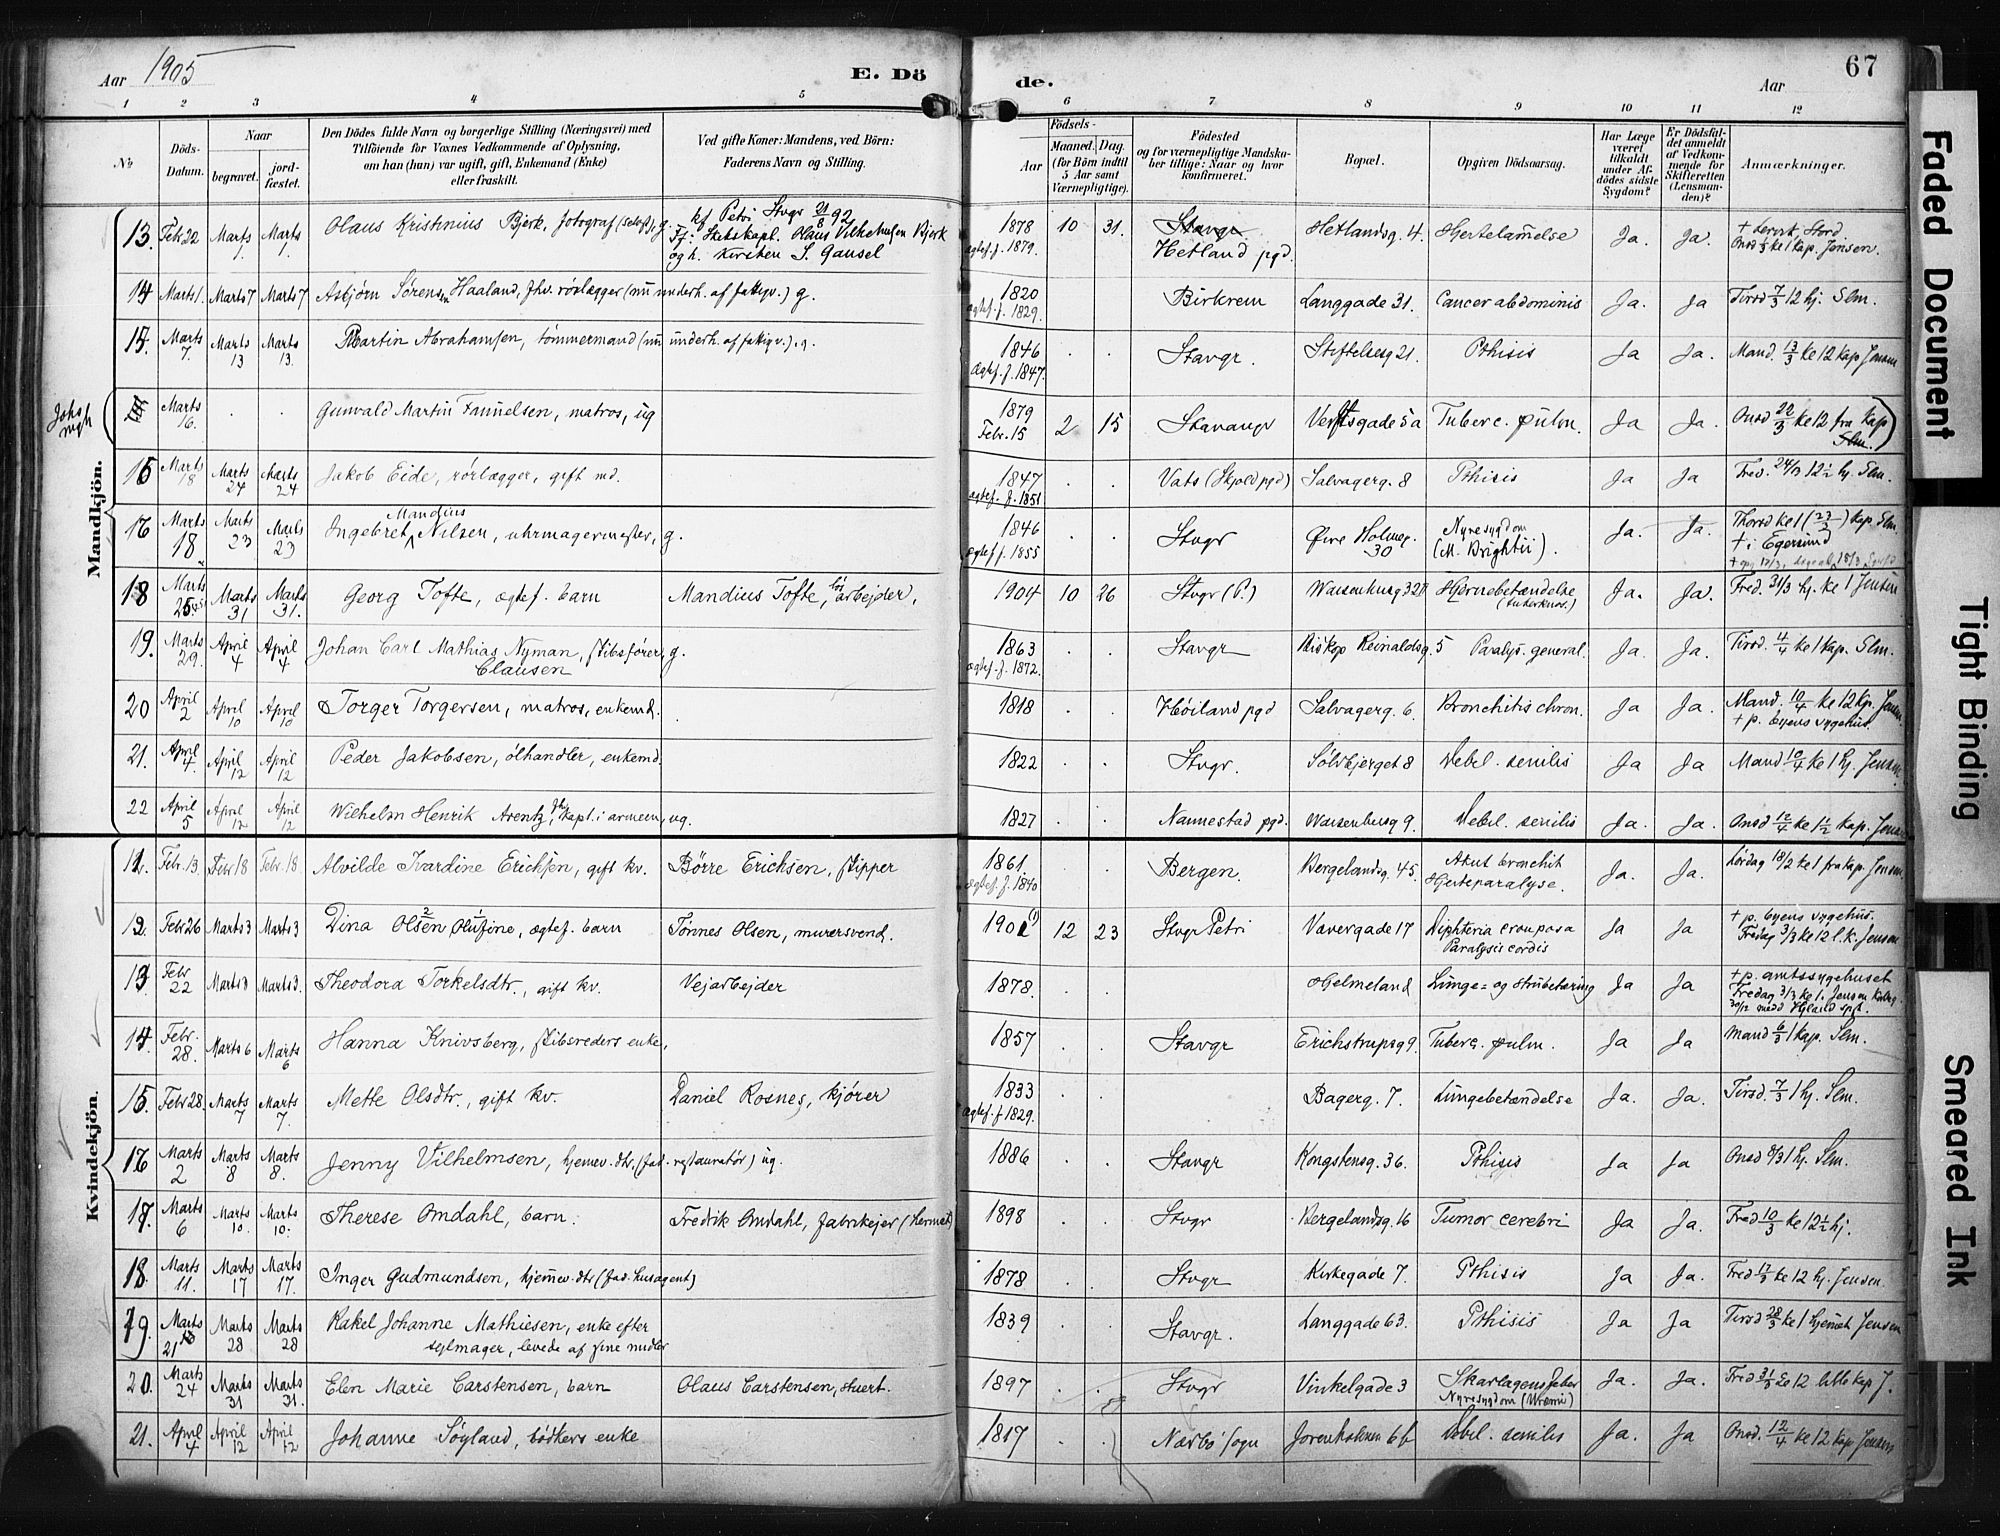 Aar 1905
E. Dö
de.
67
Aar
1 2 3 4 5 6 7 8 9 10 11 12
No
Döds-Datum.
Naar
begravet.
jord-fæstet.
Den Dödes fulde Navn og borgerlige Stilling (Næringsvei) med
Tilföiende for Voxnes Vedkommende af Oplysning,
om han (hun) var ugift, gift, Enkemand (Enke)
eller fraskilt.
Ved gifte Koner: Mandens, ved Börn:
Faderens Navn og Stilling.
Födsels-
Aar
Maaned. Dag.
(for Börn indtil
5 Aar samt
Værnepligtige).
Födested
og for værnepligtige Mandska-
ber tillige: Naar og hvor
konfirmeret.
Bopæl.
Opgiven Dödsaarsag.
Har Læge
været
tilkaldt
under Af-
dödes sidste
Sygdom?
Er Dödsfal-
det anmeldt
af Vedkom-
mende for
Skifteretten
(Lensman-
den)?
Anmærkninger.
Mandkjön.
13. Febr 22 Marts 7. Marts 7. Olaus Kristinius Bjerk, fotograf g. 1878 10 31. Stavgr Hetland pgd. Hetlandsg. 4. Hjertelamelse Ja. Ja.
14 Marts 1. Marts 7 Marts 7 Asbjørn Sørensen Haaland, fhv. rørlægger (nu underh. af fattigv.) g. 1820 ægtef. f. 1829. Birkrem Langgade 31. Cancer abdominis Ja. Ja Tirsd 7/3 12 hj. Slm.
15. Marts 7. Marts 13 Marts 13. Martin Abrahamsen, tømmermand (nu underh. af fattigv.), g. 1846 ægtef. f. 1847. Stavgr. Stiftelsesg 21. Pthisis Ja Ja. Mand. 13/3 ke 12 kap Jensen
Marts 16. Gunvald Martin Fannelsen, matros, ug 1879 Febr. 15 2 15 Stavangr Verftsgade 5a Tuberc. pulm. Ja Ja. Onsd 22/3 ke 12 fra kap Slm.
15 Marts 18 Marts 24 Marts 24 Jakob Eide, rørlægger, gift md. 1847 ægtef. f. 1851 Vats (Skjold pgd) Salvagerg. 8 Pthisis Ja Ja Fred. 24/3 12½ hj. Slm.
16 Marts 18 Marts 23 Marts 23 Ingebret Mandius Nilsen, uhrmagermester, g. 1846 ægtef f. 1855 Stvgr Øvre Holmeg. 30 Nyresygdom (M. Brightii). Ja. Ja. Thorsd ke 1 (23/3) kap. Slm. + i Egersund
18 Marts 25 Marts 31 Marts 31. Georg Tofte, ægtef. barn Mandius Tofte, løsarbejder, 1904 10 26 Stvgr (P.) Waisenhusg 32 Hjernebetændelse (tuberkuløs.) Ja. Ja. Fred. 31/3 hj. ke 1 Jensen
19. Marts 29. April 4 April 4 Johan Carl Mathias Nyman Clausen, skibsfører, g. 1863 ægtef. f. 1872. Stavgr Biskop Reinaldsg. 5 Paralys. general. Ja. Ja. Tirsd. 4/4 ke 1 kap. Slm.
20 April 2 April 10 April 10 Torger Torgersen, matros, enkemd. 1818 Høiland pgd Salvagerg. 6. Bronchitis chron. Ja Ja. Mand. 10/4 ke 12 kp. Jensen + p. byens sygehus.
21. April 4. April 12 April 12 Peder Jakobsen, ølhandler, enkemd. 1822 Stvgr. Sølvbjerget 8 Debil. senilis Ja Ja Mand. 10/4 ke 1 hj. Jensen
22 April 5 April 12 April 12 Wilhelm Henrik Arentz, fhv. kapt. i armeen, ug. 1827 Nannestad pgd. Waisenhusg 9. Debil. senilis Ja. Ja. Onsd 12/4 ke 1½ kap. Jensen
Kvindekjön.
11. Febr. 13 Febr 18 Febr. 18 Alvilde Ivardine Erichsen, gift kv. Børre Erichsen, skipper 1861. ægtef. f. 1840 Bergen. Bergelandsg. 45. Akut bronchit Hjerteparalyse. Ja. Ja. Lørdag 18/2 ke 1 fra kap. Jensen
12. Febr 26 Marts 3 Marts 3 Dina Olsen Olufine, ægtef. barn Tønnes Olsen, murersvend. 1901 12 23 Stvgr Petri Vævergade 17 Diphteria crouposa Paralysis cordis Ja Ja + p. byens sygehus. Fredag 3/3 ke 12 l.k. Jensen
13 Febr 22 Marts 3 Marts 3. Theodora Torkelsdtr., gift kv. Vejarbejder 1878. Hjelmeland Lunge= og strubetæring Ja Ja + p. amtssygehuset Fredag 3/3 ke 1. Jensen
14. Febr. 28. Marts 6 Marts 6 Hanna Knivsberg, skibsreders enke, 1857 Stavgr Erichstrupsg 9. Tuberc. pulm. Ja Ja Mand 6/3 1 kap. Slm.
15. Febr 28. Marts 7 Marts 7. Mette Olsdtr., gift kv. Daniel Rosnes, kjører 1833 ægtef. f 1829. Bagerg. 7. Lungebetændelse Ja. Ja. Tirsd. 7/3 1 hj. Slm.
16 Marts 2 Marts 8 Marts 8. Jenny Vilhelmsen, hjemev. dtr. (fad. restauratør) ug. 1886 Stavgr Kongstensg. 36. Pthisis Ja Ja Onsd 8/3 1 hj. Slm.
17. Marts 6 Marts 10. Marts 10. Therese Omdahl, barn. Fredrik Omdahl, fabrikejer (hermet) 1898 Stvgr Bergelandsg. 16 Tumor cerebri Ja Ja. Fred 10/3 ke 12½ hj.
18. Marts 11. Marts 17 Marts 17. Inger Gudmundsen, hjemev. dtr (fad. husagent) 1878. Stvgr Kirkegade 7. Pthisis Ja Ja. Fred 17/3 ke 12 hj. Jensen.
19. Marts 21 Marts 28 Marts 28 Rakel Johanne Mathiesen, enke efter sejlmager, levede af sine midler 1839 Stavgr. Langgade 63. Pthisis Ja Ja Tirsd 28/3 ke 1 hjemet Jensen
20. Marts 24 Marts 31 Marts 31. Elen Marie Carstensen, barn Olaus Carstensen, stuert. 1897 Stvgr Vinkelgade 3 Skarlagensfeber Nyresygdom (Uræmi) Ja. Ja. Fred 31/3 ke 12 lille kap J.
21. April 4 April 12 April 12 Johanne Søyland, bødkers enke 1817 Nærbø sogn Jorenholmen 6b Debil. senilis Ja. Ja Onsd. 12/4 ke 12 kap Jensen
Faded Document
Tight Binding
Smeared Ink